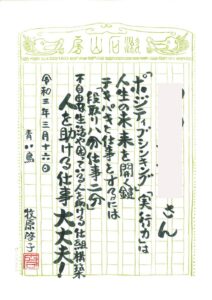 漱石山房
さん
“ポジティブシンキング”“実行力”は
人生の未来を開く鍵
テキパキと仕事をするには
“段取り八分仕事二分”
不自由な生活や困っている人を助ける仕組構築
人を助ける仕事 大丈夫!
令和三年三月十六日
青い鳥
牧原